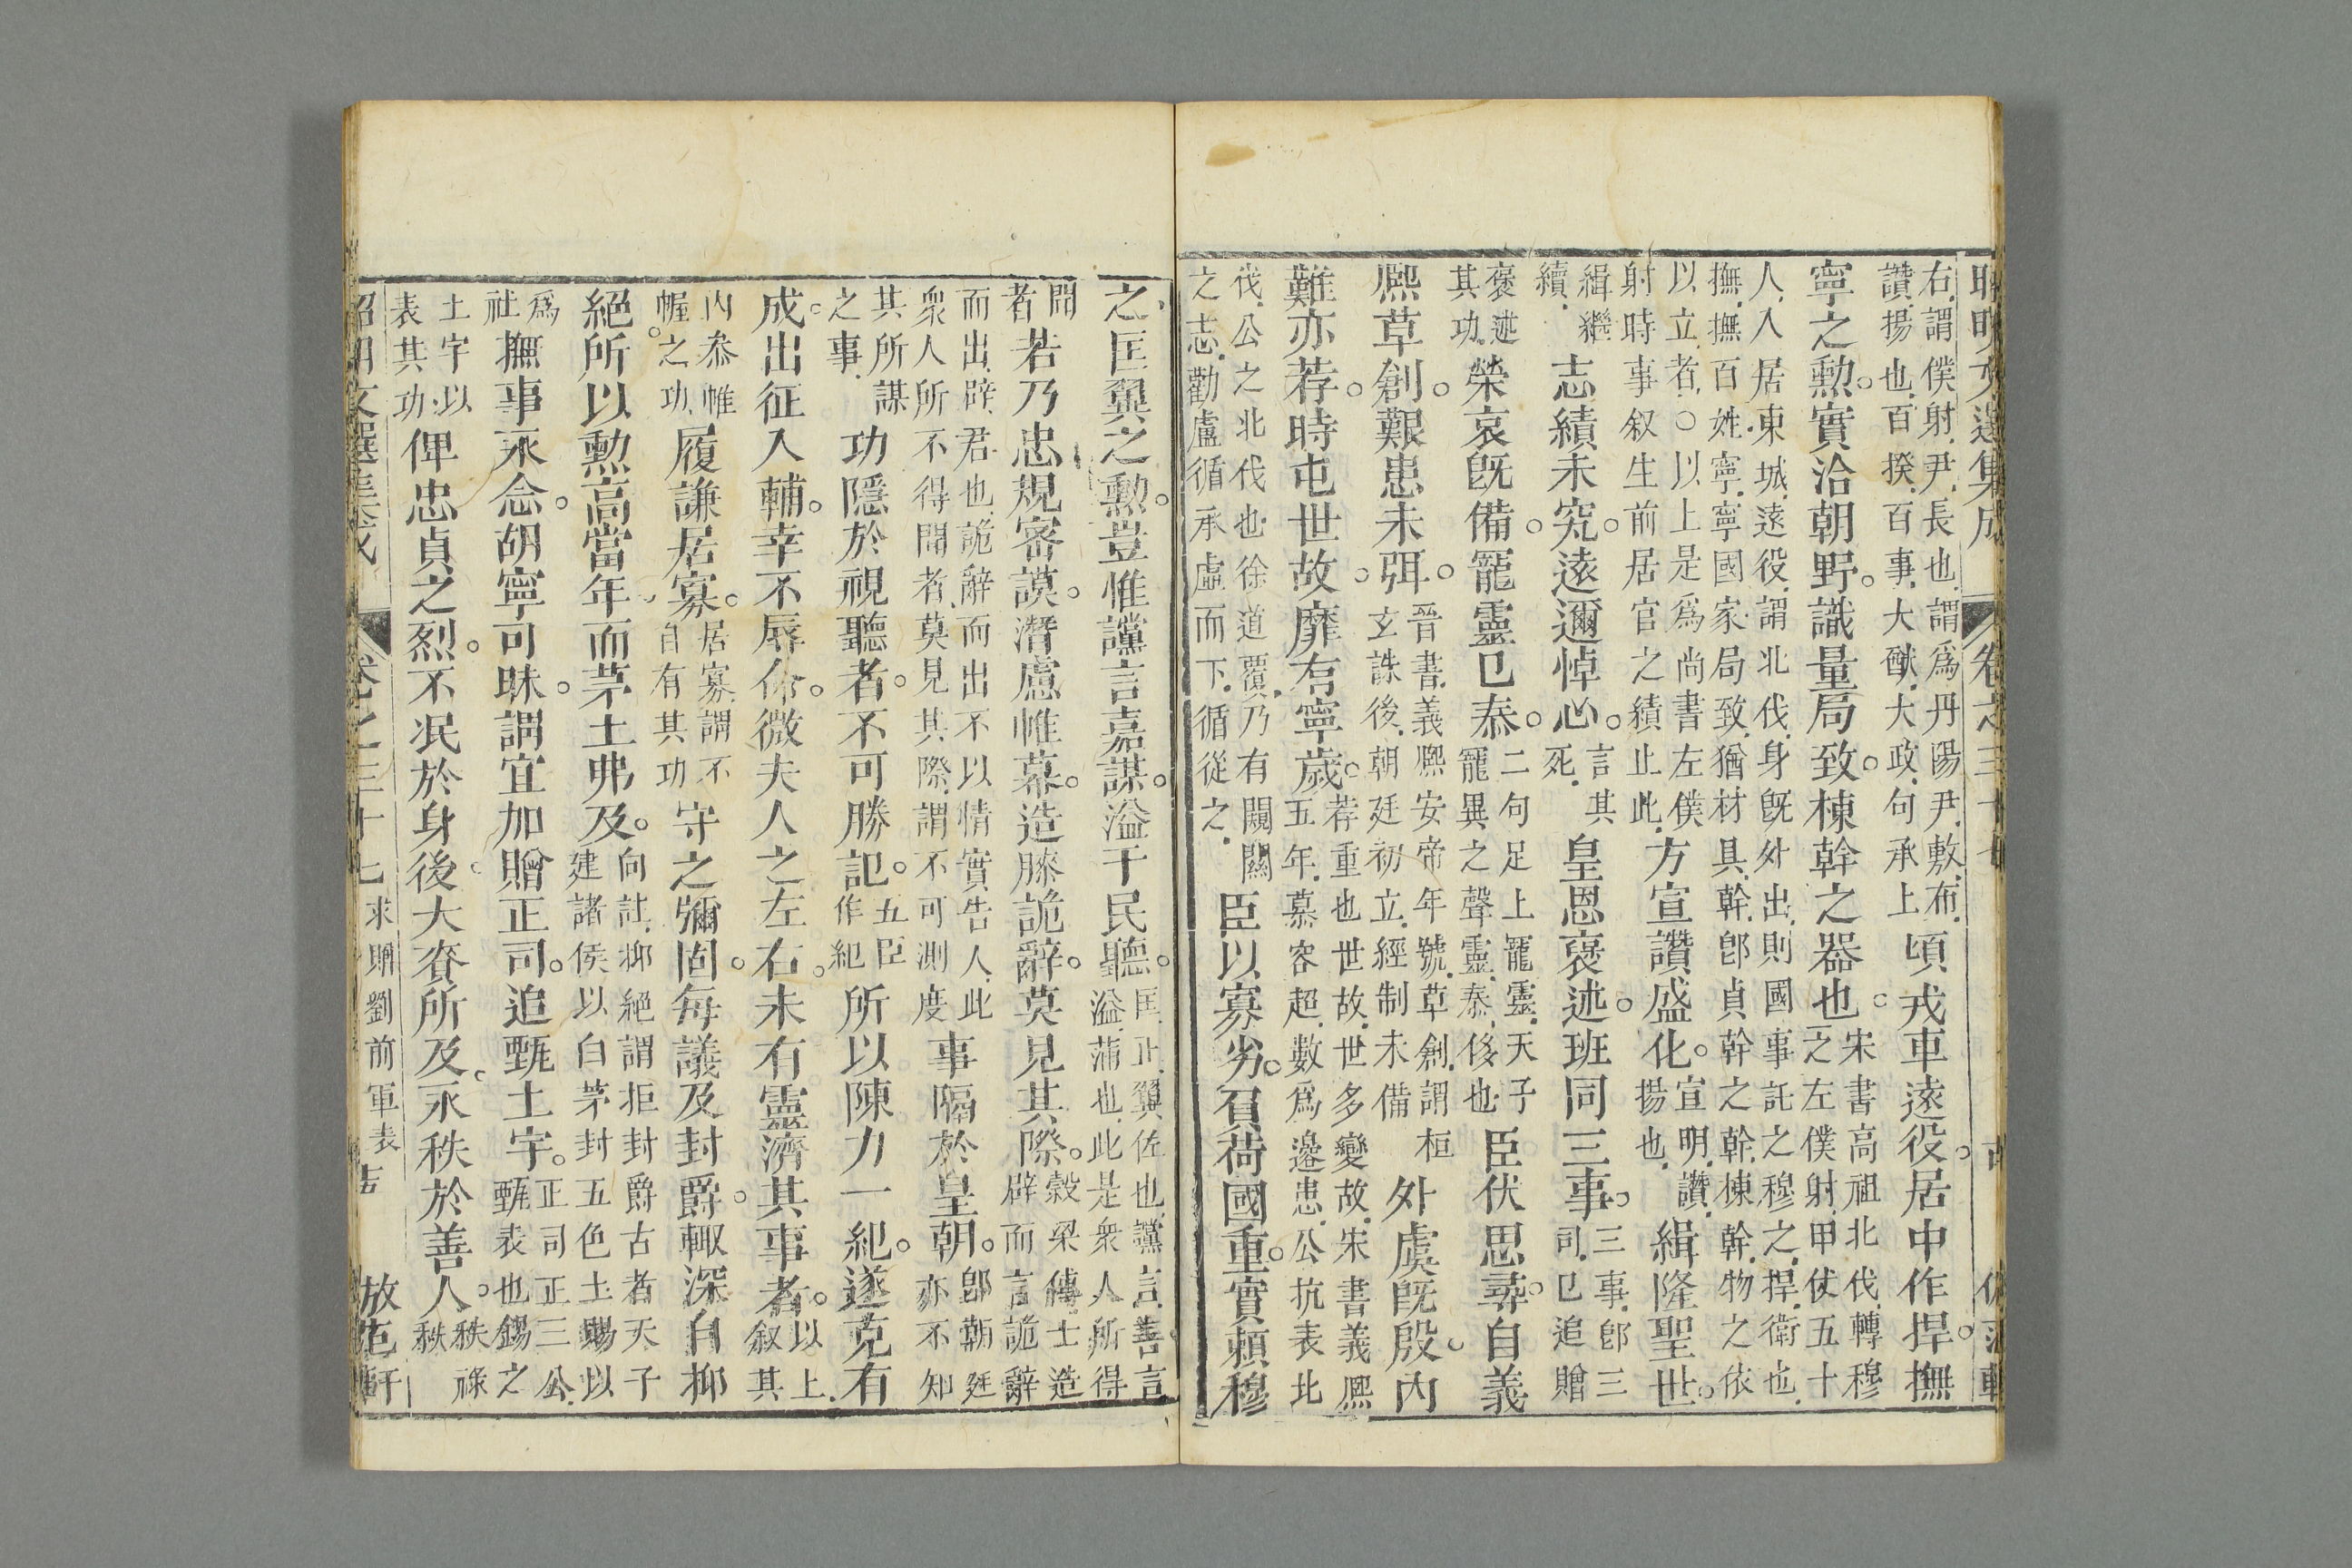 昭明文選集成 卷之三十七
右謂僕射尹長也謂爲丹陽尹敷布
讚揚也百揆百事大猷大政句承上
頃戎車遠役。居中作捍。撫
寧之勲。實洽朝野。識量局致。棟幹之器也。
宋書高祖北伐轉穆
之左僕射甲仗五十
人入居東城遠役謂北伐身旣外出則國事託之穆之捍衛也
撫撫百姓寧寧國家局致猶材具幹卽貞幹之幹棟幹物之依
以立者○以上是爲尚書左僕
射時事叙生前居官之績止此
方宣讚盛化。
宣明讚
揚也
緝隆聖世。
緝繼
績
志績未究。遠邇悼心。
言其
死
皇恩褒述。班同三事。
三事卽三
司已追贈
褒述
其功
榮哀旣備。寵靈已泰。
二句足上寵靈天子
寵異之聲靈泰侈也
臣伏思尋。自義
熙草創。艱患未弭。
晉書義熙安帝年號草創謂桓
玄誅後朝廷初立經制未備
外虞旣殷。內
難亦荐。時屯世故。靡有寧歲。
荐重也世故世多變故宋書義熙
五年慕容超數爲邊患公抗表北
伐公之北伐也徐道覆乃有闚
之志勸盧循承虛而下循從之
臣以寡劣。負荷國重。實賴穆
之匡翼之勲。豈惟讜言嘉謀。溢于民聽。
匡正翼佐也讜言善言
溢蒲也此是衆人所得
聞
者
若乃忠規密謨。潛慮帷幕。造膝詭辭。莫見其際。
穀梁傳士造
辟而言詭辭
而出辟君也詭辭而出不以情實告人此
衆人所不得聞者莫見其際謂不可測度
事隔於皇朝。
卽朝廷
亦不知
其所謀
之事
功隱於視聽者。不可勝記。
五臣
作紀
所以陳力一紀。遂克有
成。出征入輔。幸不辱命。微夫人之左右。未有靈濟其事者。
以上
叙其
內叅帷
幄之功
履謙居寡。
居寡謂不
自有其功
守之彌固。每議及封爵。輙深自抑
絕。所以勲高當年。而茅土弗及。
向註抑絕謂拒封爵古者天子
建諸侯以白茅封五色土賜以
爲
社
撫事永念。胡寧可昧。謂宜加贈正司。追甄土宇。
正司正三公
甄表也錫之
土宇以
表其功
俾忠貞之烈。不泯於身後。大賚所及。永秩於善人。
秩祿
秩
昭明文選集成 卷之三十七 求贈劉前軍表 倣范軒